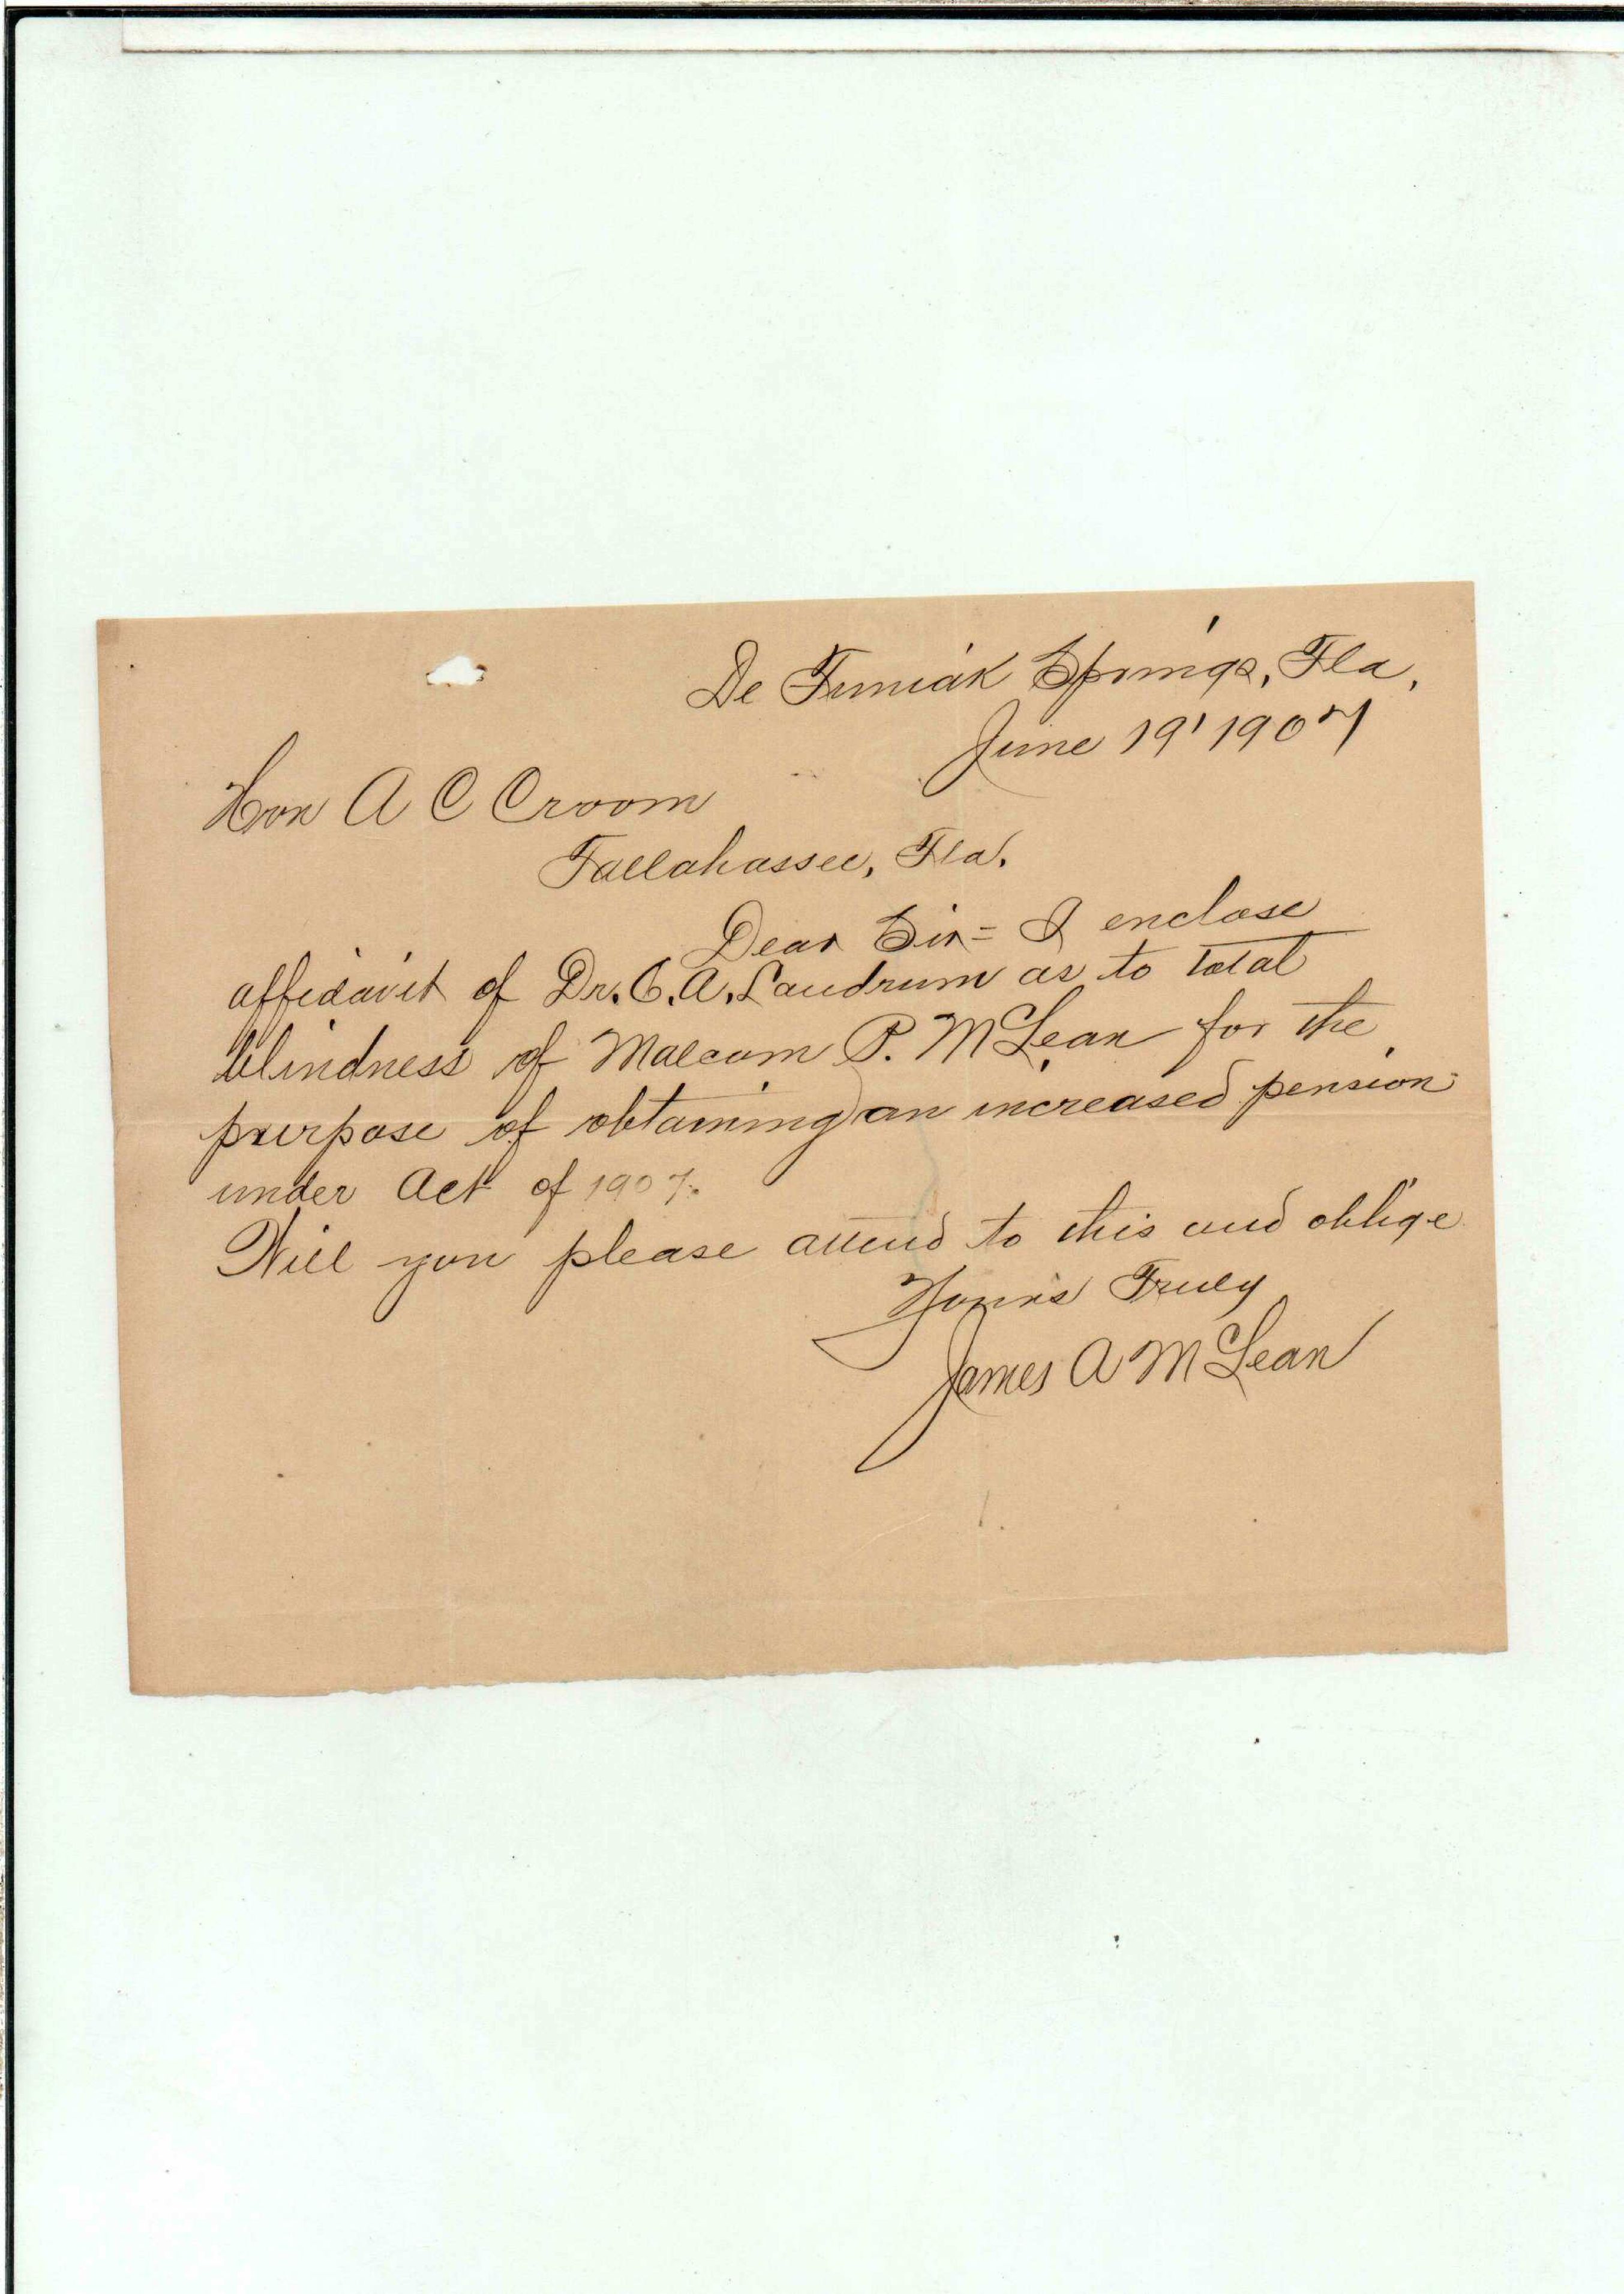 De Funiak Springs, Fla,
June 19' 1907
Hon A C Croom
Tallahassee, Fla.
Dear Sir = I enclose
affidavit of Dr. C. A. Landrum as to total
blindness of Malcom P. McLean for the
purpose of obtaining an increased pension
under Act of 1907.
Will you please attend to this and oblige
Yours Truly
James A McLean